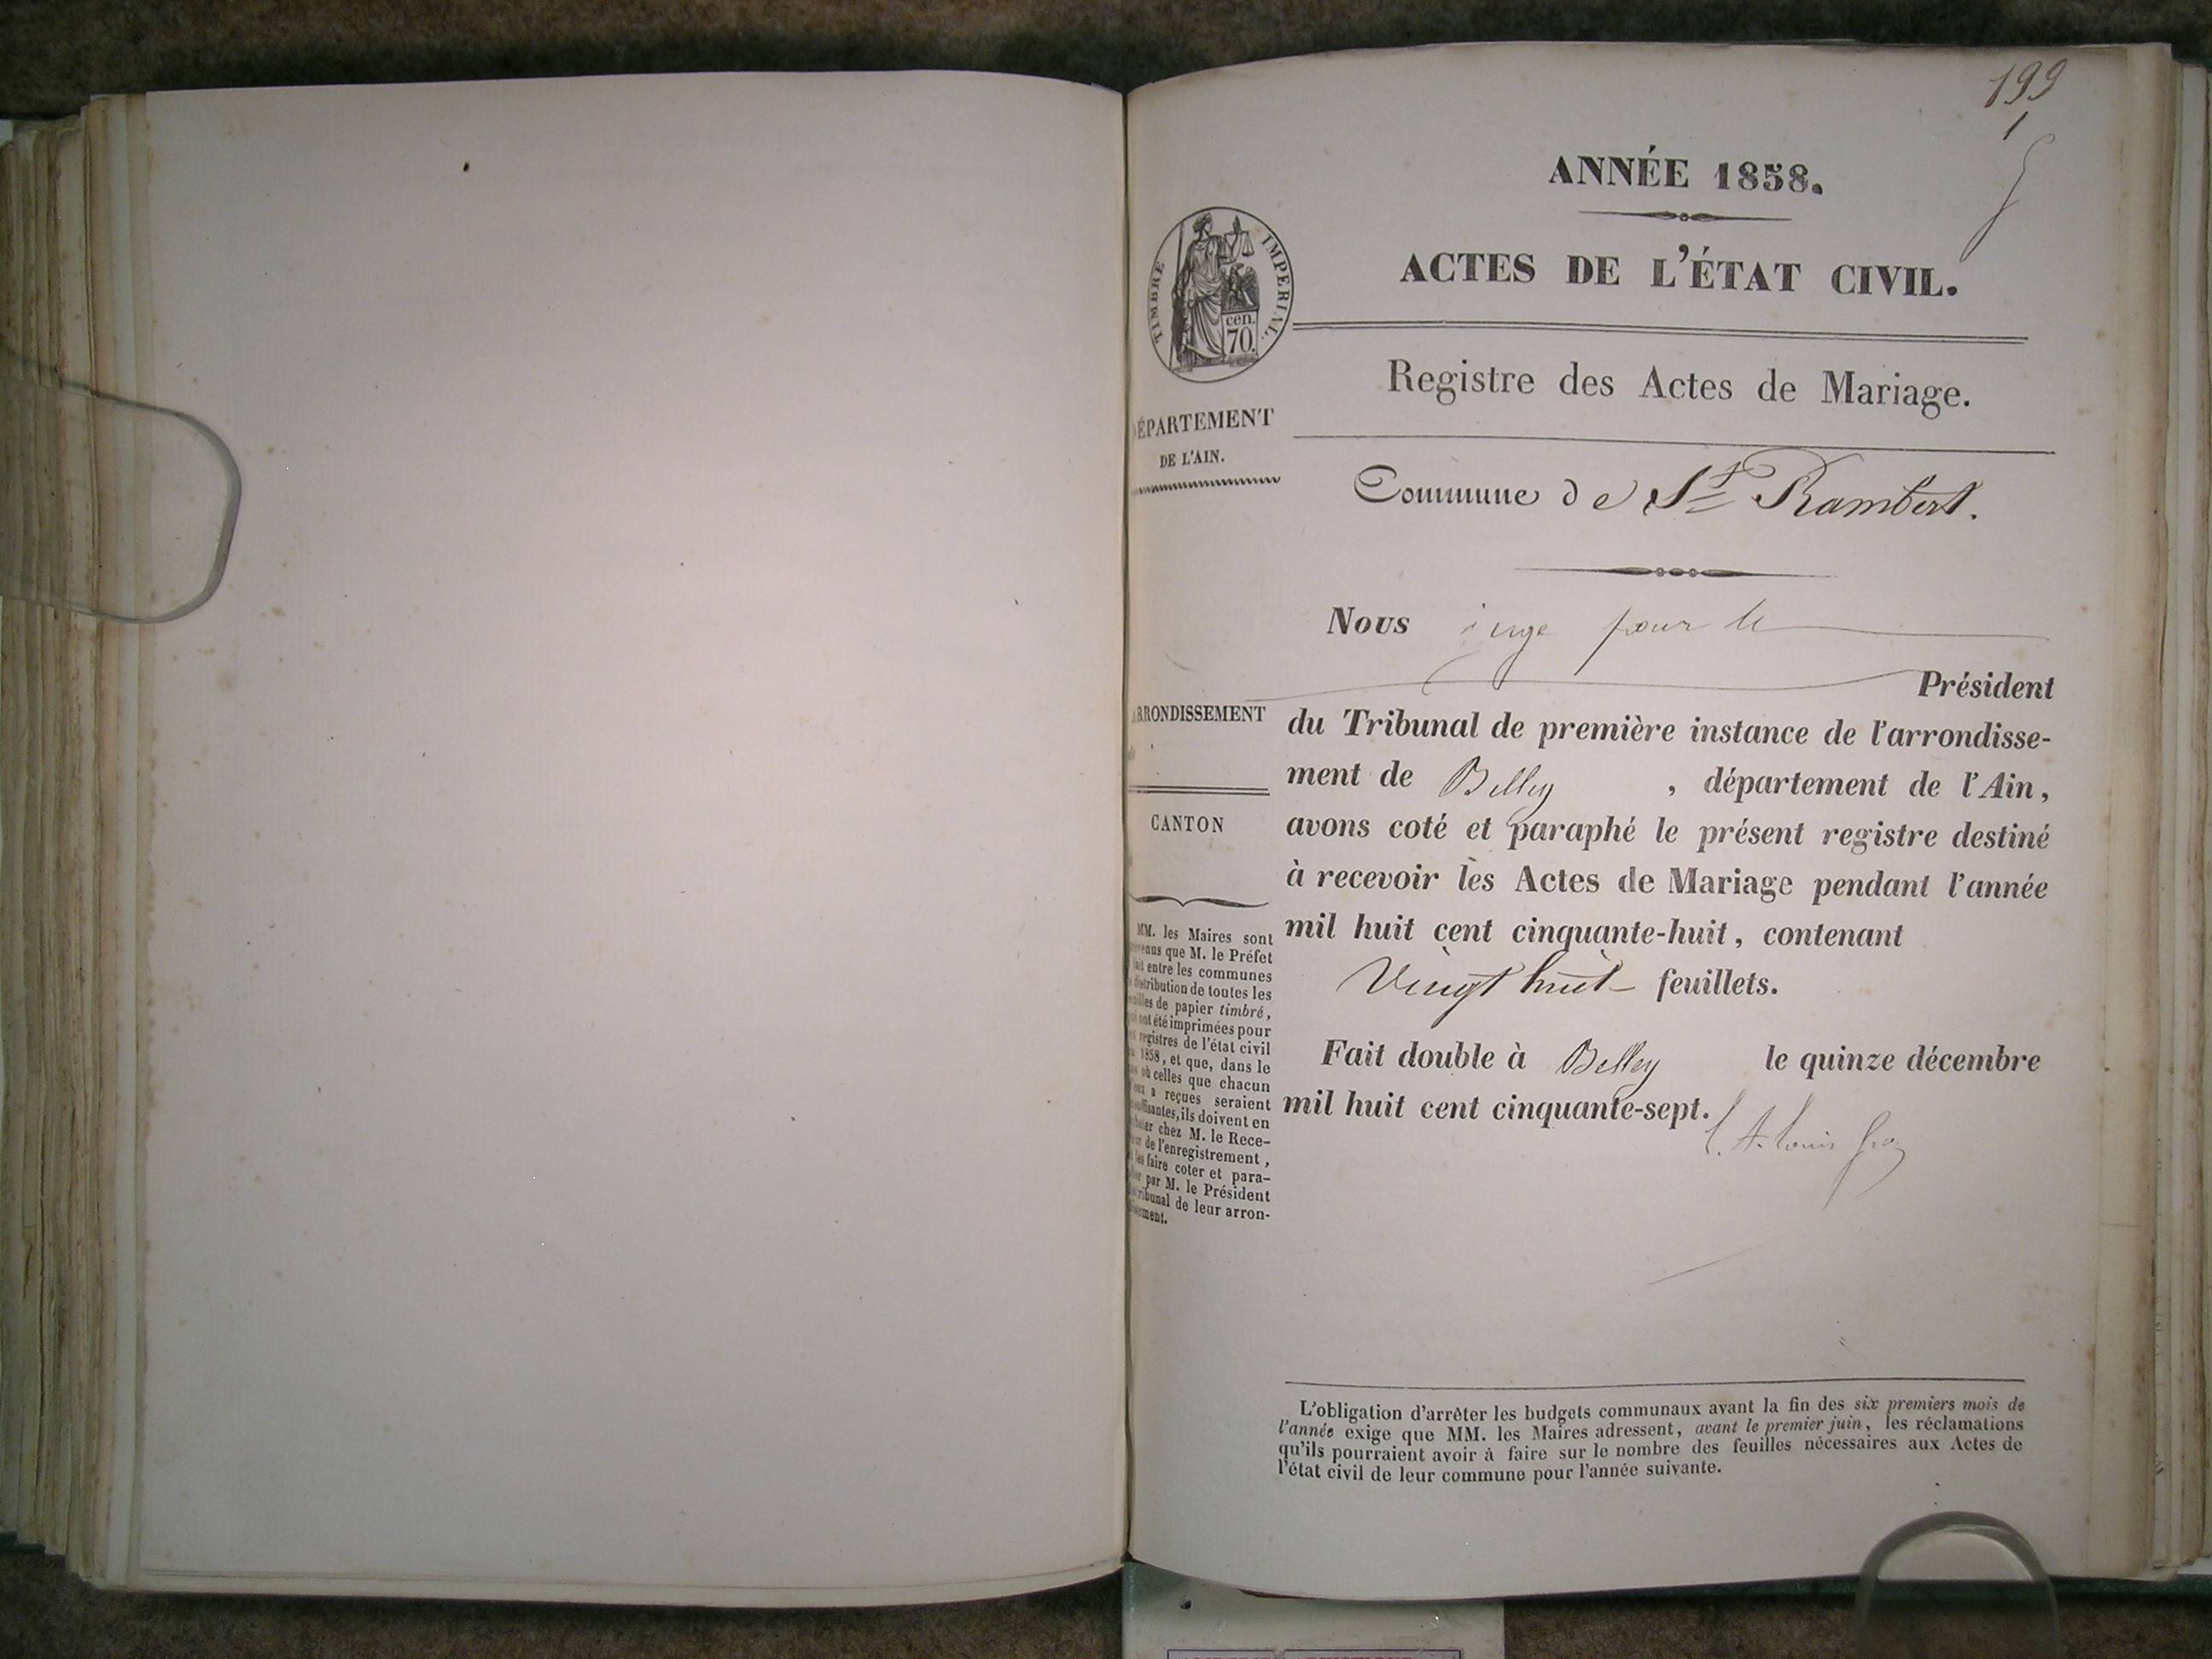 199
1
ANNÉE 1858.
ACTES DE L'ÉTAT CIVIL.
TIMBRE IMPERIAL.
cen.
70.
Registre des Actes de Mariage.
DÉPARTEMENT
DE L'AIN.
Commune de St Rambert.
Nous juge pour le
Président
ARRONDISSEMENT
du Tribunal de première instance de l'arrondisse-
ment de Belley , département de l'Ain,
CANTON
avons coté et paraphé le présent registre destiné
à recevoir les Actes de Mariage pendant l'année
mil huit cent cinquante-huit, contenant
Vingt huit feuillets.
Fait double à Belley le quinze décembre
mil huit cent cinquante-sept.
MM. les Maires sont
prévenus que M. le Préfet
fait entre les communes
distribution de toutes les
feuilles de papier timbré,
qui ont été imprimées pour
les registres de l'état civil
1858, et que, dans le
cas où celles que chacun
d'eux a reçues seraient
insuffisantes, ils doivent en
acheter chez M. le Rece-
veur de l'enregistrement,
les faire coter et para-
pher par M. le Président
tribunal de leur arron-
dissement.
L'obligation d'arrêter les budgets communaux avant la fin des six premiers mois de
l'année exige que MM. les Maires adressent, avant le premier juin, les réclamations
qu'ils pourraient avoir à faire sur le nombre des feuilles nécessaires aux Actes de
l'état civil de leur commune pour l'année suivante.